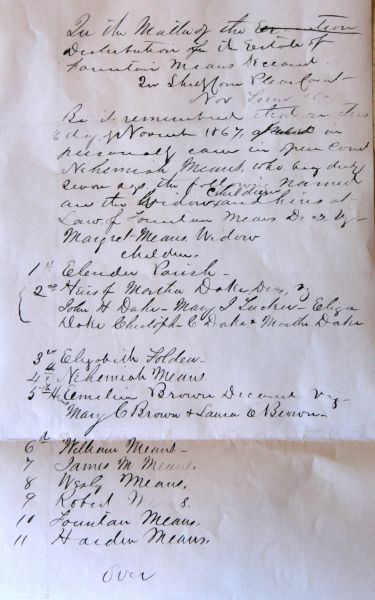 In the Matter of the
Distribution in the Estate of
Fountain Means Deceased
In Common Pleas Court
Nov Term
Be it remembered that on this
6 day of Novemt 1867, in
personally came in open Court
Nehemiah Means, who being duly
sworn says the following named
children
are the Widow, and hirs at
Law, of Fountain Means Decs, Vz
Margret Means Widow
children.
1st Elender Parish -
2nd Heirs of Martha Dake, Decs, vz
John H Dake - Mary J Tucker - Eliza
Dake Christoph C Dake & Martha Dake
3rd Elizabeth Folden -
4th Nehemiah Means
5th Emeline Brown Deceased Vz
Mary C Brown & Laura E Brown -
6th William Means -
7 James M Means,
8 Wesly Means,
9 Robert Means.
10 Fountan Means.
11 Harden Means.
over